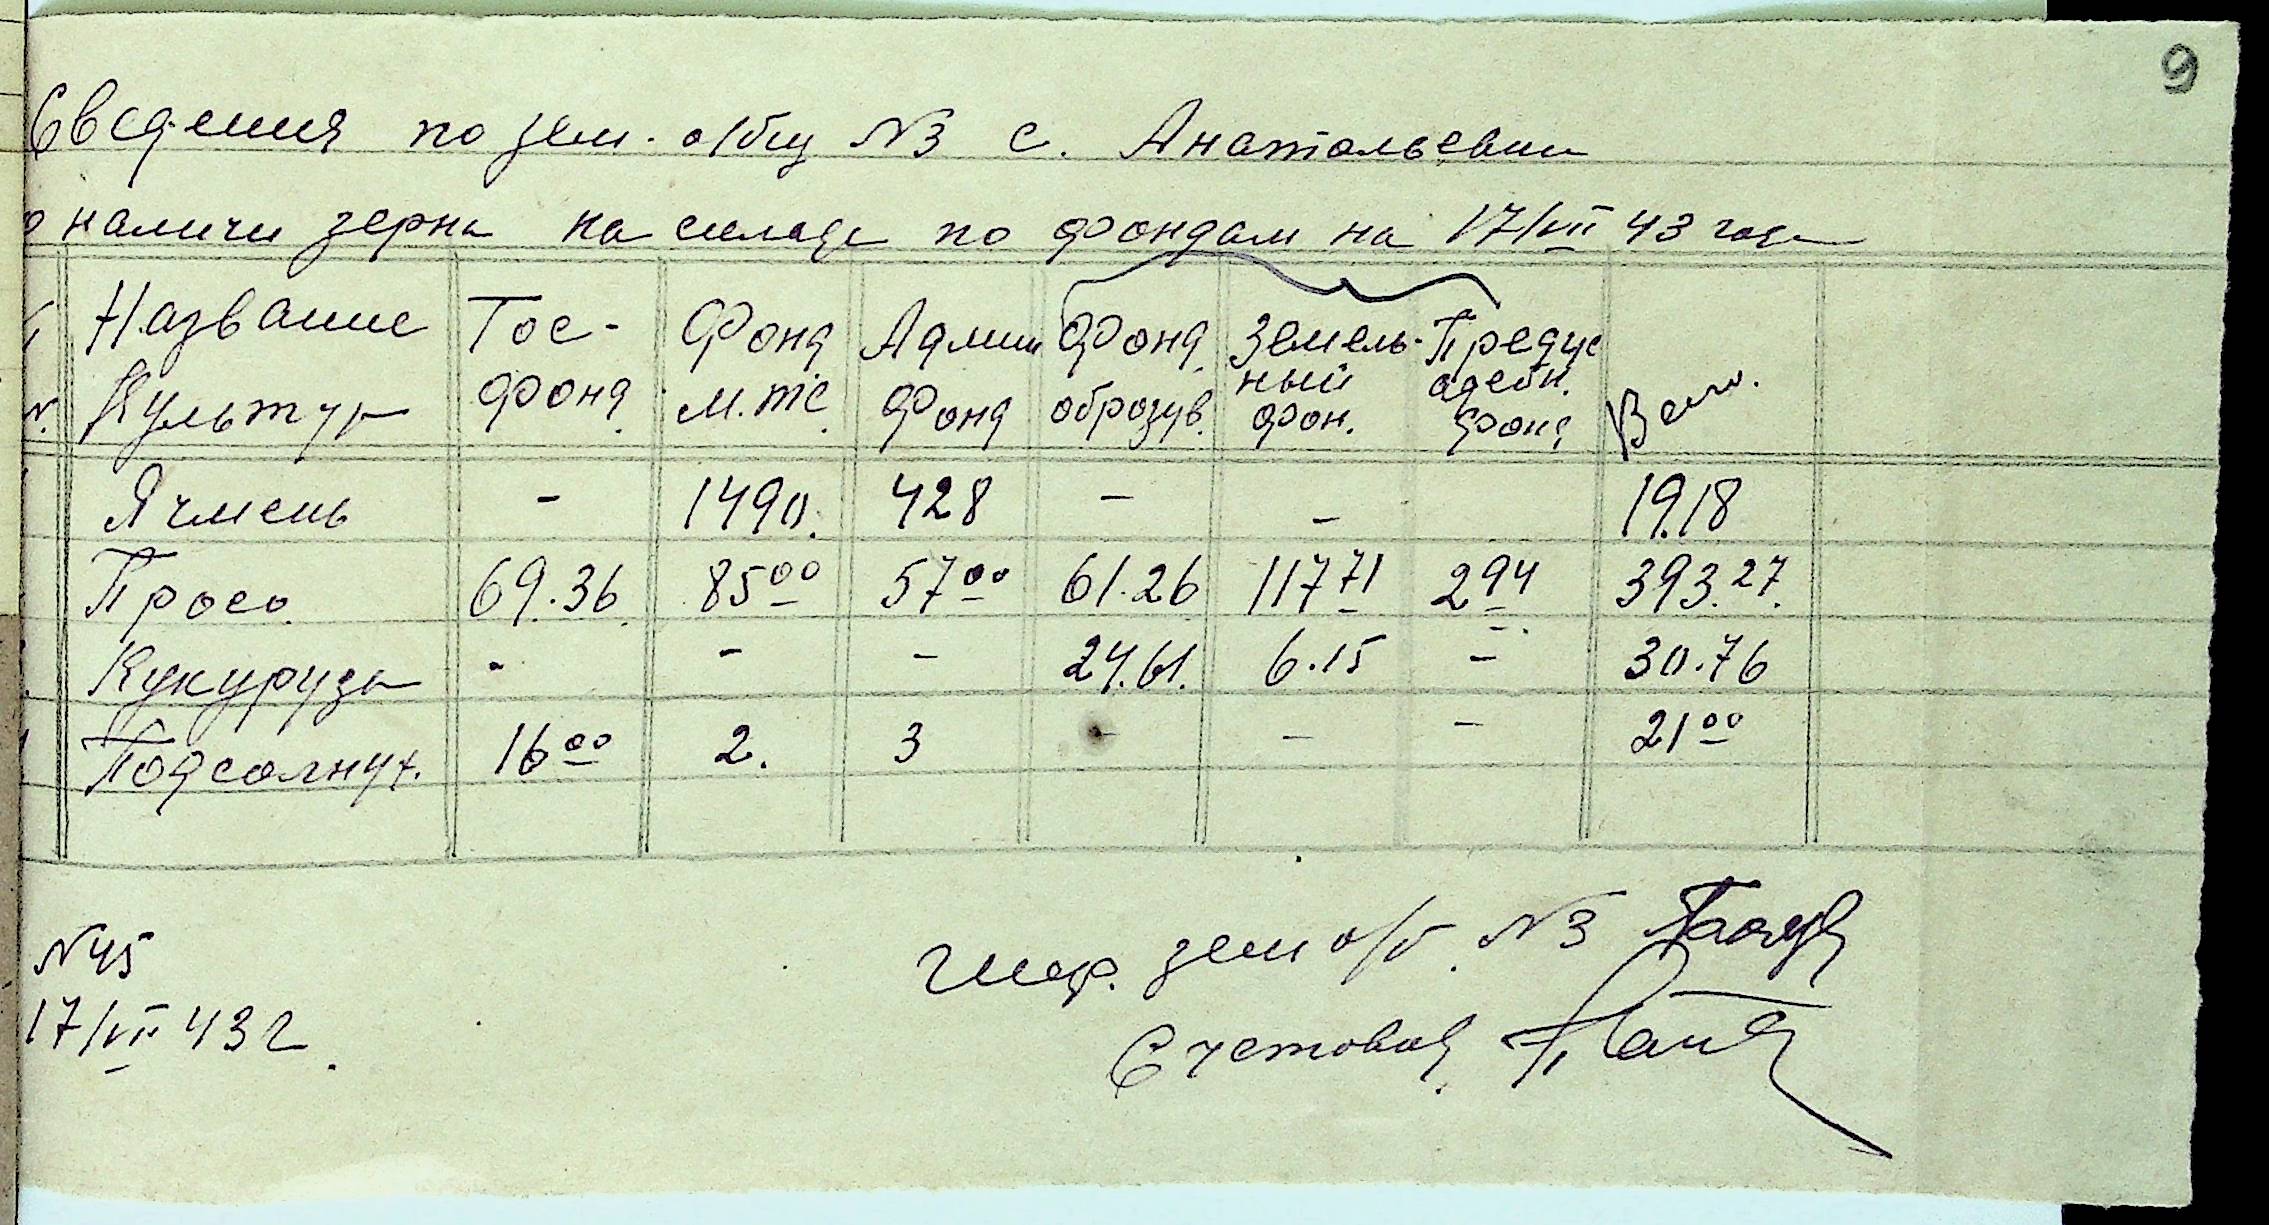 9
Сведения по зем. о/бщ N3 с. Анатольевки
о наличи зерна на складе по фондам на 17/VII 43 года
N. Название Культур Гос-фонд. Фонд М.Т.С. Админ фонд Фонд образув. Земель-ный фон. Предус адебн. фонд Всего.
Ячмень - 1490. 428 - - 19.18
Просо. 69.36. 85 00 57 00 61.26 117 71 2 94 393.27.
Кукуруза - - - 24.61. 6.15 - 30.76
Подсолнух. 16 00 2. 3 - - - 21 00
N45
17/VII 43 г.
зем о/б. N3
Счетовод